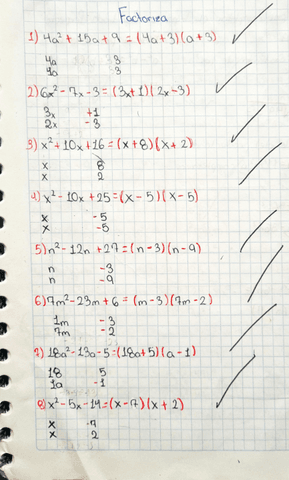 Factoriza
1) 4a² + 15a + 9 = (4a+3)(a+3)
4a 3
1a 3
2) 6x² - 7x - 3 = (3x+1)(2x-3)
3x +1
2x -3
3) x² + 10x + 16 = (x+8)(x+2)
x 8
x 2
4) x² - 10x + 25 = (x-5)(x-5)
x -5
x -5
5) n² - 12n + 27 = (n-3)(n-9)
n -3
n -9
6) 7m² - 23m + 6 = (m-3)(7m-2)
1m -3
7m -2
7) 18a² - 13a - 5 = (18a+5)(a-1)
18 5
1a -1
8) x² - 5x - 14 = (x-7)(x+2)
x -7
x 2